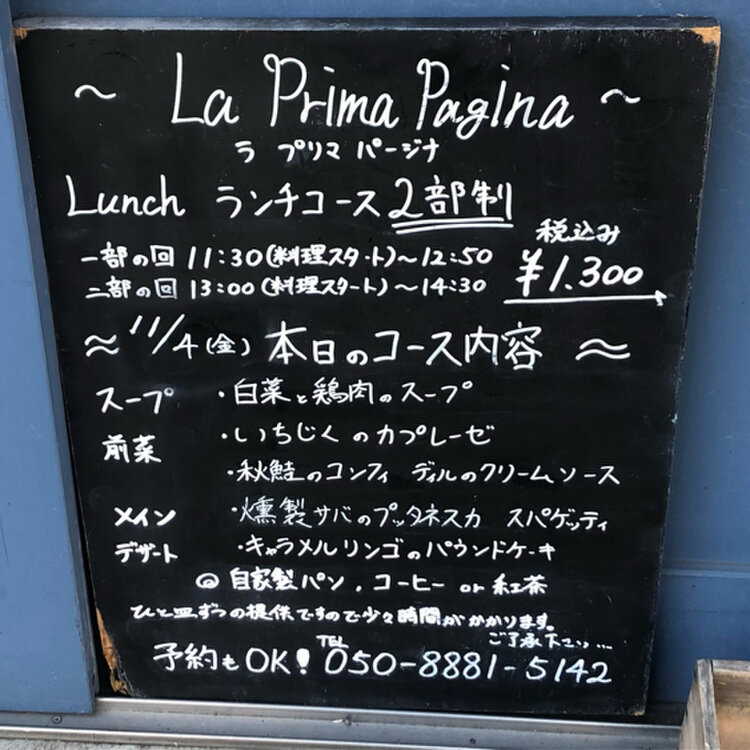 ~ La Prima Pagina ~
ラ プリマ パージナ
Lunch ランチコース 2部制
税込み
一部の回 11:30(料理スタート)~12:50
¥1.300
二部の回 13:00(料理スタート)~14:30
~ 11/4(金) 本日のコース内容 ~
スープ ・白菜と鶏肉のスープ
前菜 ・いちじくのカプレーゼ
・秋鮭のコンフィ ディルのクリームソース
メイン ・燻製サバのプッタネスカ スパゲッティ
デザート ・キャラメルリンゴのパウンドケーキ
◎ 自家製パン、コーヒー or 紅茶
ひと皿ずつの提供ですので少々時間がかかります。
ご了承下さい...
予約もOK! TEL 050-8881-5142